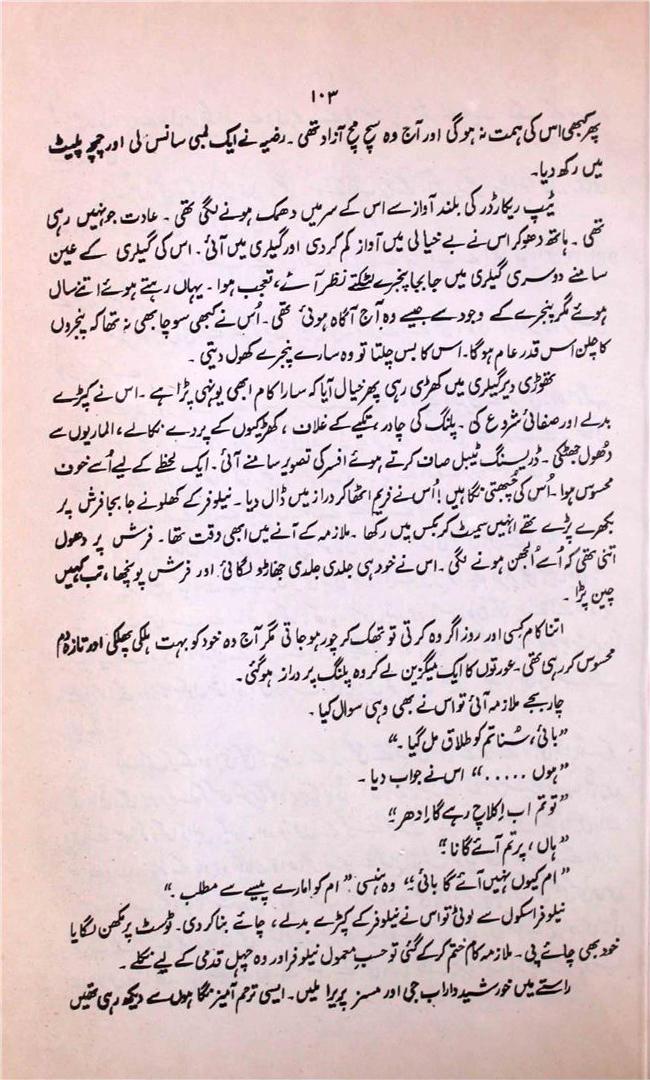 ۱۰۳
پھر کبھی اس کی ہمت نہ ہوگی اور آج وہ سچ مچ آزاد تھی۔ رضیہ نے ایک لمبی سانس لی اور چمچہ پلیٹ
میں رکھ دیا۔
ٹیپ ریکارڈر کی بلند آواز سے اس کے سر میں دھمک ہونے لگی تھی۔ عادت جو نہیں رہی
تھی۔ ہاتھ دھو کر اس نے بے خیالی میں آواز کم کردی اور گیلری میں آئی۔ اس کی گیلری کے عین
سامنے دوسری گیلری میں جابجا پنجرے لٹکتے نظر آئے، تعجب ہوا۔ یہاں رہتے ہوئے اتنے سال
ہوئے مگر پنجرے کے وجود سے جیسے وہ آج آگاہ ہوئی تھی۔ اُس نے کبھی سوچا بھی نہ تھا کہ پنجروں
کا چلن اس قدر عام ہوگا۔ اس کا بس چلتا تو وہ سارے پنجرے کھول دیتی۔
تھوڑی دیر گیلری میں کھڑی رہی پھر خیال آیا کہ سارا کام ابھی یونہی پڑا ہے۔ اس نے کپڑے
بدلے اور صفائی شروع کی۔ پلنگ کی چادر، تکیے کے غلاف، کھڑکیوں کے پردے نکالے، الماریوں سے
دُھول جھٹکی۔ ڈریسنگ ٹیبل صاف کرتے ہوئے افسر کی تصویر سامنے آئی۔ ایک لحظے کے لیے اُسے خوف
محسوس ہوا۔ اُس کی چُبھتی نگاہیں! اُس نے فریم اٹھا کر دراز میں ڈال دیا۔ نیلوفر کے کھلونے جابجا فرش پر
بکھرے پڑے تھے انہیں سمیٹ کر بکس میں رکھا۔ ملازمہ کے آنے میں ابھی وقت تھا۔ فرش پر دھول
اتنی تھی کہ اُسے اُلجھن ہونے لگی۔ اس نے خود ہی جلدی جلدی جھاڑو لگائی اور فرش پونچھا، تب کہیں
چین پڑا۔
اتنا کام کسی اور روز اگر وہ کرتی تو تھک کر چور ہو جاتی مگر آج وہ خود کو بہت ہلکی پھلکی اور تازہ دم
محسوس کررہی تھی۔ عورتوں کا ایک میگزین لے کر وہ پلنگ پر دراز ہوگئی۔
چار بجے ملازمہ آئی تو اس نے بھی وہی سوال کیا۔
”بائی، سُنا تم کو طلاق مل گیا۔“
”ہوں .....“ اس نے جواب دیا۔
”تو تم اب اکلاچ رہے گا اِدھر؟“
”ہاں، پر تم آئے گا نا؟“
”ام کیوں نہیں آئے گا بائی؟“ وہ ہنسی ”ام کو امارے پیسے سے مطلب۔“
نیلوفر اسکول سے لوٹی تو اس نے نیلوفر کے کپڑے بدلے، چائے بنا کر دی۔ ٹوسٹ پر مکھن لگایا
خود بھی چائے پی۔ ملازمہ کام ختم کرکے گئی تو حسبِ معمول نیلوفر اور وہ چہل قدمی کے لیے نکلے۔
راستے میں خورشید داراب جی اور مسز پریرا ملیں۔ ایسی ترحم آمیز نگاہوں سے دیکھ رہی تھیں